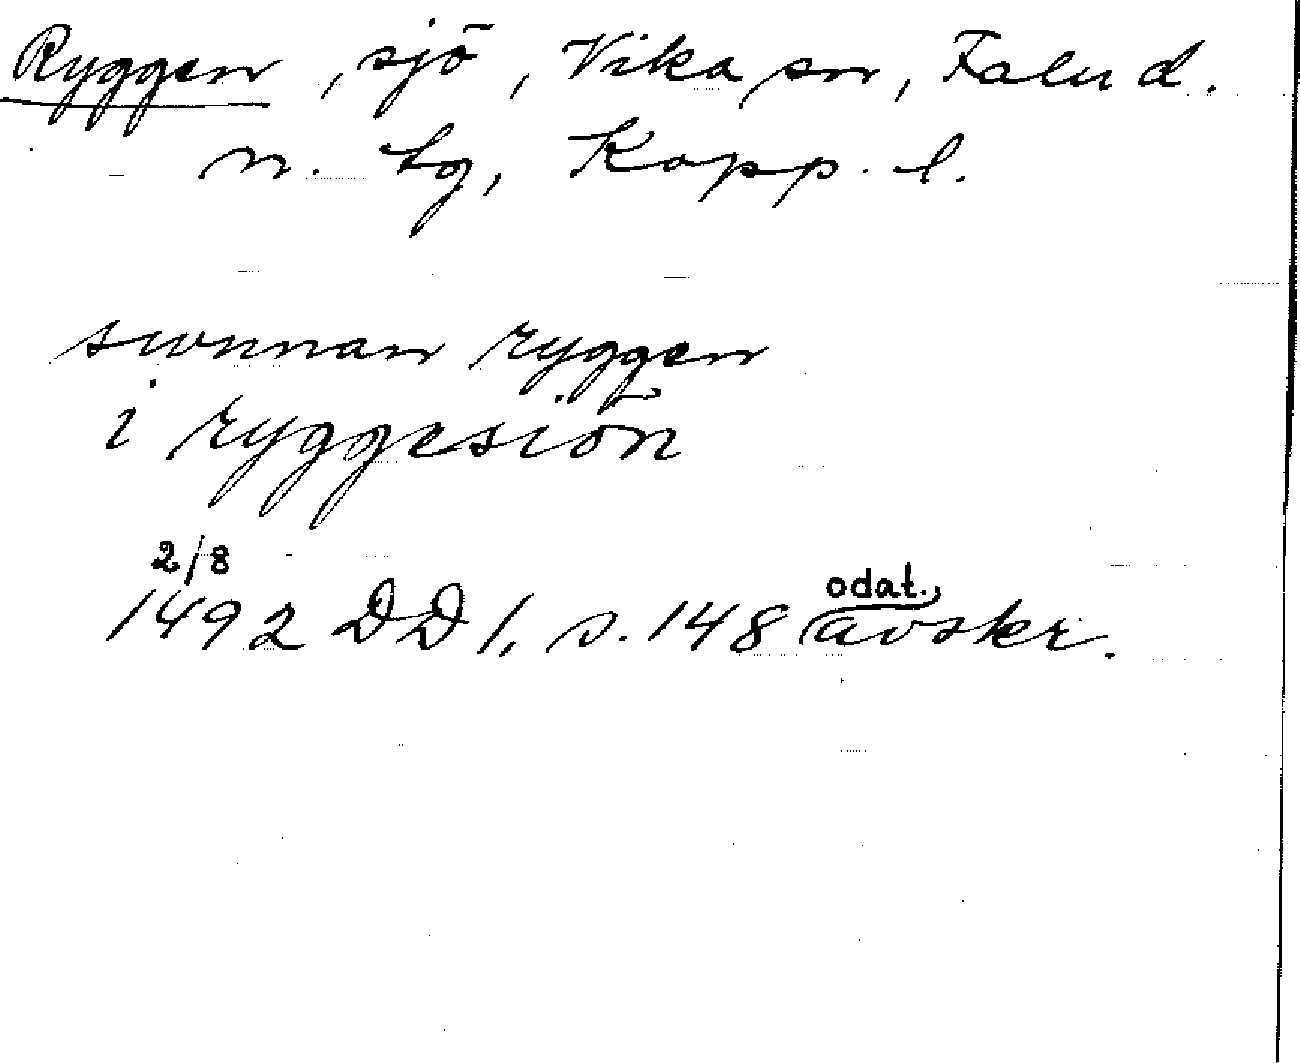 Ryggen, sjö, Vika sn, Falu d.
n. tg, Kopp. l.
swnnan ryggen
i ryggesiön
2/8
1492 DD 1, s. 148 (odat., avskr.